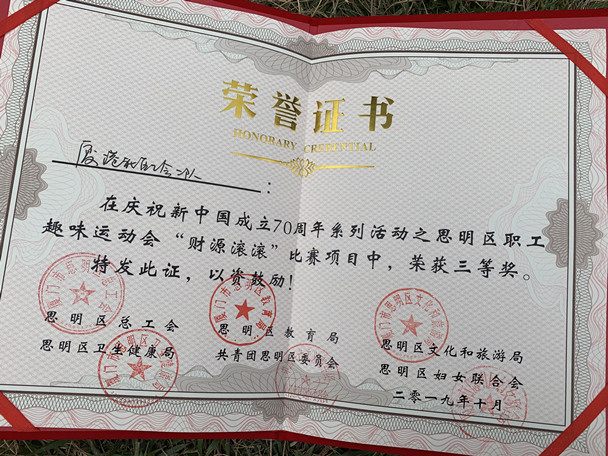 荣誉证书
HONORARY CREDENTIAL
:
在庆祝新中国成立70周年系列活动之思明区职工
趣味运动会“财源滚滚”比赛项目中，荣获三等奖。
特发此证，以资鼓励！
思明区总工会
思明区教育局
思明区文化和旅游局
思明区卫生健康局
共青团思明区委员会
思明区妇女联合会
二〇一九年十月